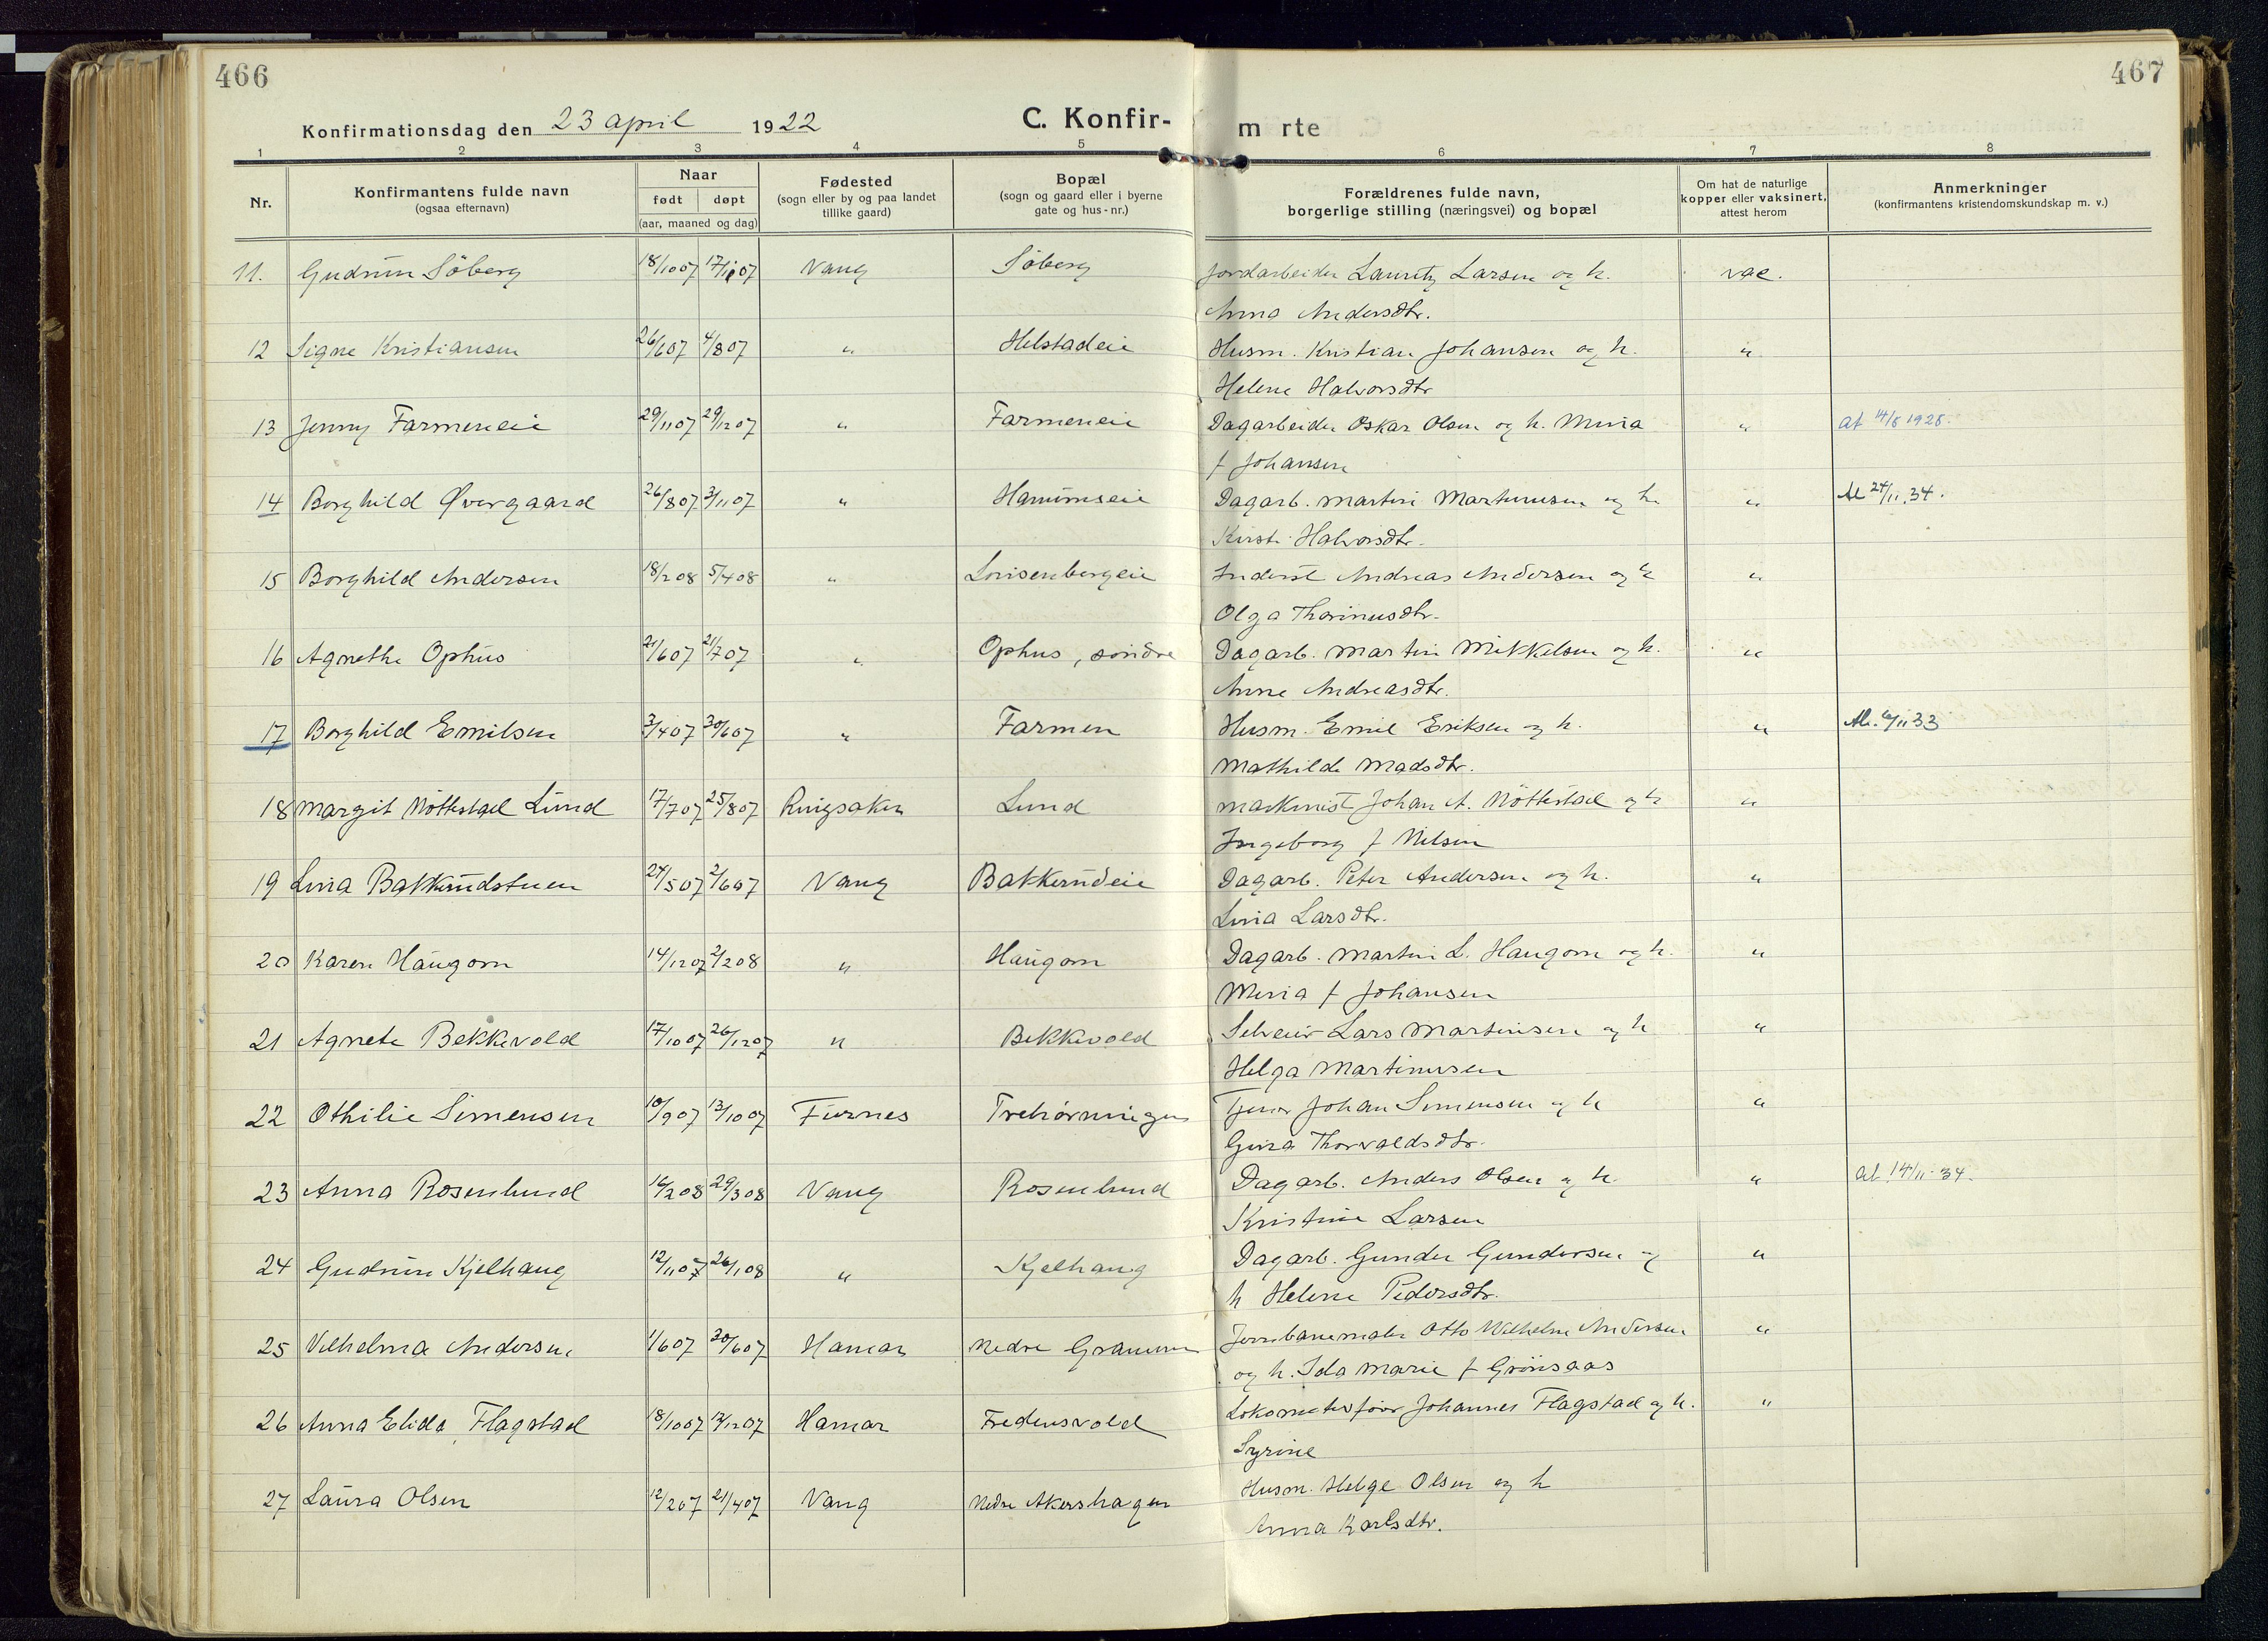 466
467
Konfirmationsdag den 23 april 1922
C. Konfir- m rte
1 2 3 4 5 6 7 8
Nr.
Konfirmantens fulde navn
(ogsaa efternavn)
Naar
født døpt
(aar, maaned og dag)
Fødested
(sogn eller by og paa landet
tillike gaard)
Bopæl
(sogn og gaard eller i byerne
gate og hus-nr.)
Forældrenes fulde navn,
borgerlige stilling (næringsvei) og bopæl
Om hat de naturlige
kopper eller vaksinert,
attest herom
Anmerkninger
(konfirmantens kristendomskundskap m. v.)
11. Gudrun Söberg 18/10 07 Vang Söberg Jordarbeider Lauritz Larsen og h. vac.
Anna Andersdtr.
12 Signe Kristiansen 26/6 07 4/8 07 " Helstadeie Husm. Kristian Johansen og h. "
Helene Halvorsdtr
13 Jenny Farmeneie 29/11 07 29/12 07 " Farmeneie Dagarbeider Oskar Olsen og h. Mina "
f Johansen
14 Borghild Øvergaard 26/8 07 3/11 07 " Dagarb. Martin Martinusen og h. " At 24/11.34.
Kirsti Halvorsdtr.
15 Borghild Andersen 18/2 08 5/4 08 " Louisenbergeie Inderst Andreas Andersen og h "
Olga Thorinusdtr.
16 Agnethe Ophus 21/6 07 21/7 07 " Ophus, søndre Dagarb. Martin Mikkelsen og h. "
Anne Andreasdtr.
17 Borghild Emilsen 3/4 07 30/6 07 " Farmen Husm. Emil Eriksen og h. "
Mathilde Madsdtr.
18 Margit Nöttestad Lund 17/7 07 25/8 07 Ringsaker Lund Maskinist Johan A. Nöttestad og h "
Ingeborg f Nilsen
19 Lina Bakkerudstuen 24/5 07 2/6 07 Vang Bakkerudeie Dagarb. Peter Andersen og h. "
Lina Larsdtr.
20 Karen Haugom 14/12 07 2/2 08 " Haugom Dagarb. Martin L. Haugom og h. "
Mina f Johansen
21 Agnete Bekkevold 17/10 07 26/12 07 " Bekkevold Selveier Lars Martinsen og h "
Helga Martinusen
22 Othilie Simensen 10/9 07 13/10 07 Furnes Trehørningen Tjener Johan Simensen og h "
Gina Thorvaldsdtr.
23 Anna Rosenlund 16/2 08 29/3 08 Vang Rosenlund Dagarb. Anders Olsen og h. " at 14/11 34.
Kristine Larsen
24 Gudrun Kjelhaug 12/11 07 26/1 08 " Kjelhaug Dagarb. Gunder Gundersen og "
h Helene Pedersdtr.
25 Vilhelma Andersen 1/6 07 30/6 07 Hamar Nedre Jernbanemaler Otto Wilhelm Andersen "
og h. Ida Marie f Grönsaas
26 Anna Elida Flagstad 18/10 07 Hamar Fredensvold Lokomotivfører Johannes Flagstad og h. "
Syrine
27 Laura Olsen 12/2 07 21/4 07 Vang Nedre Akershagen Husm. Helge Olsen og h
Anna Karlsdtr.